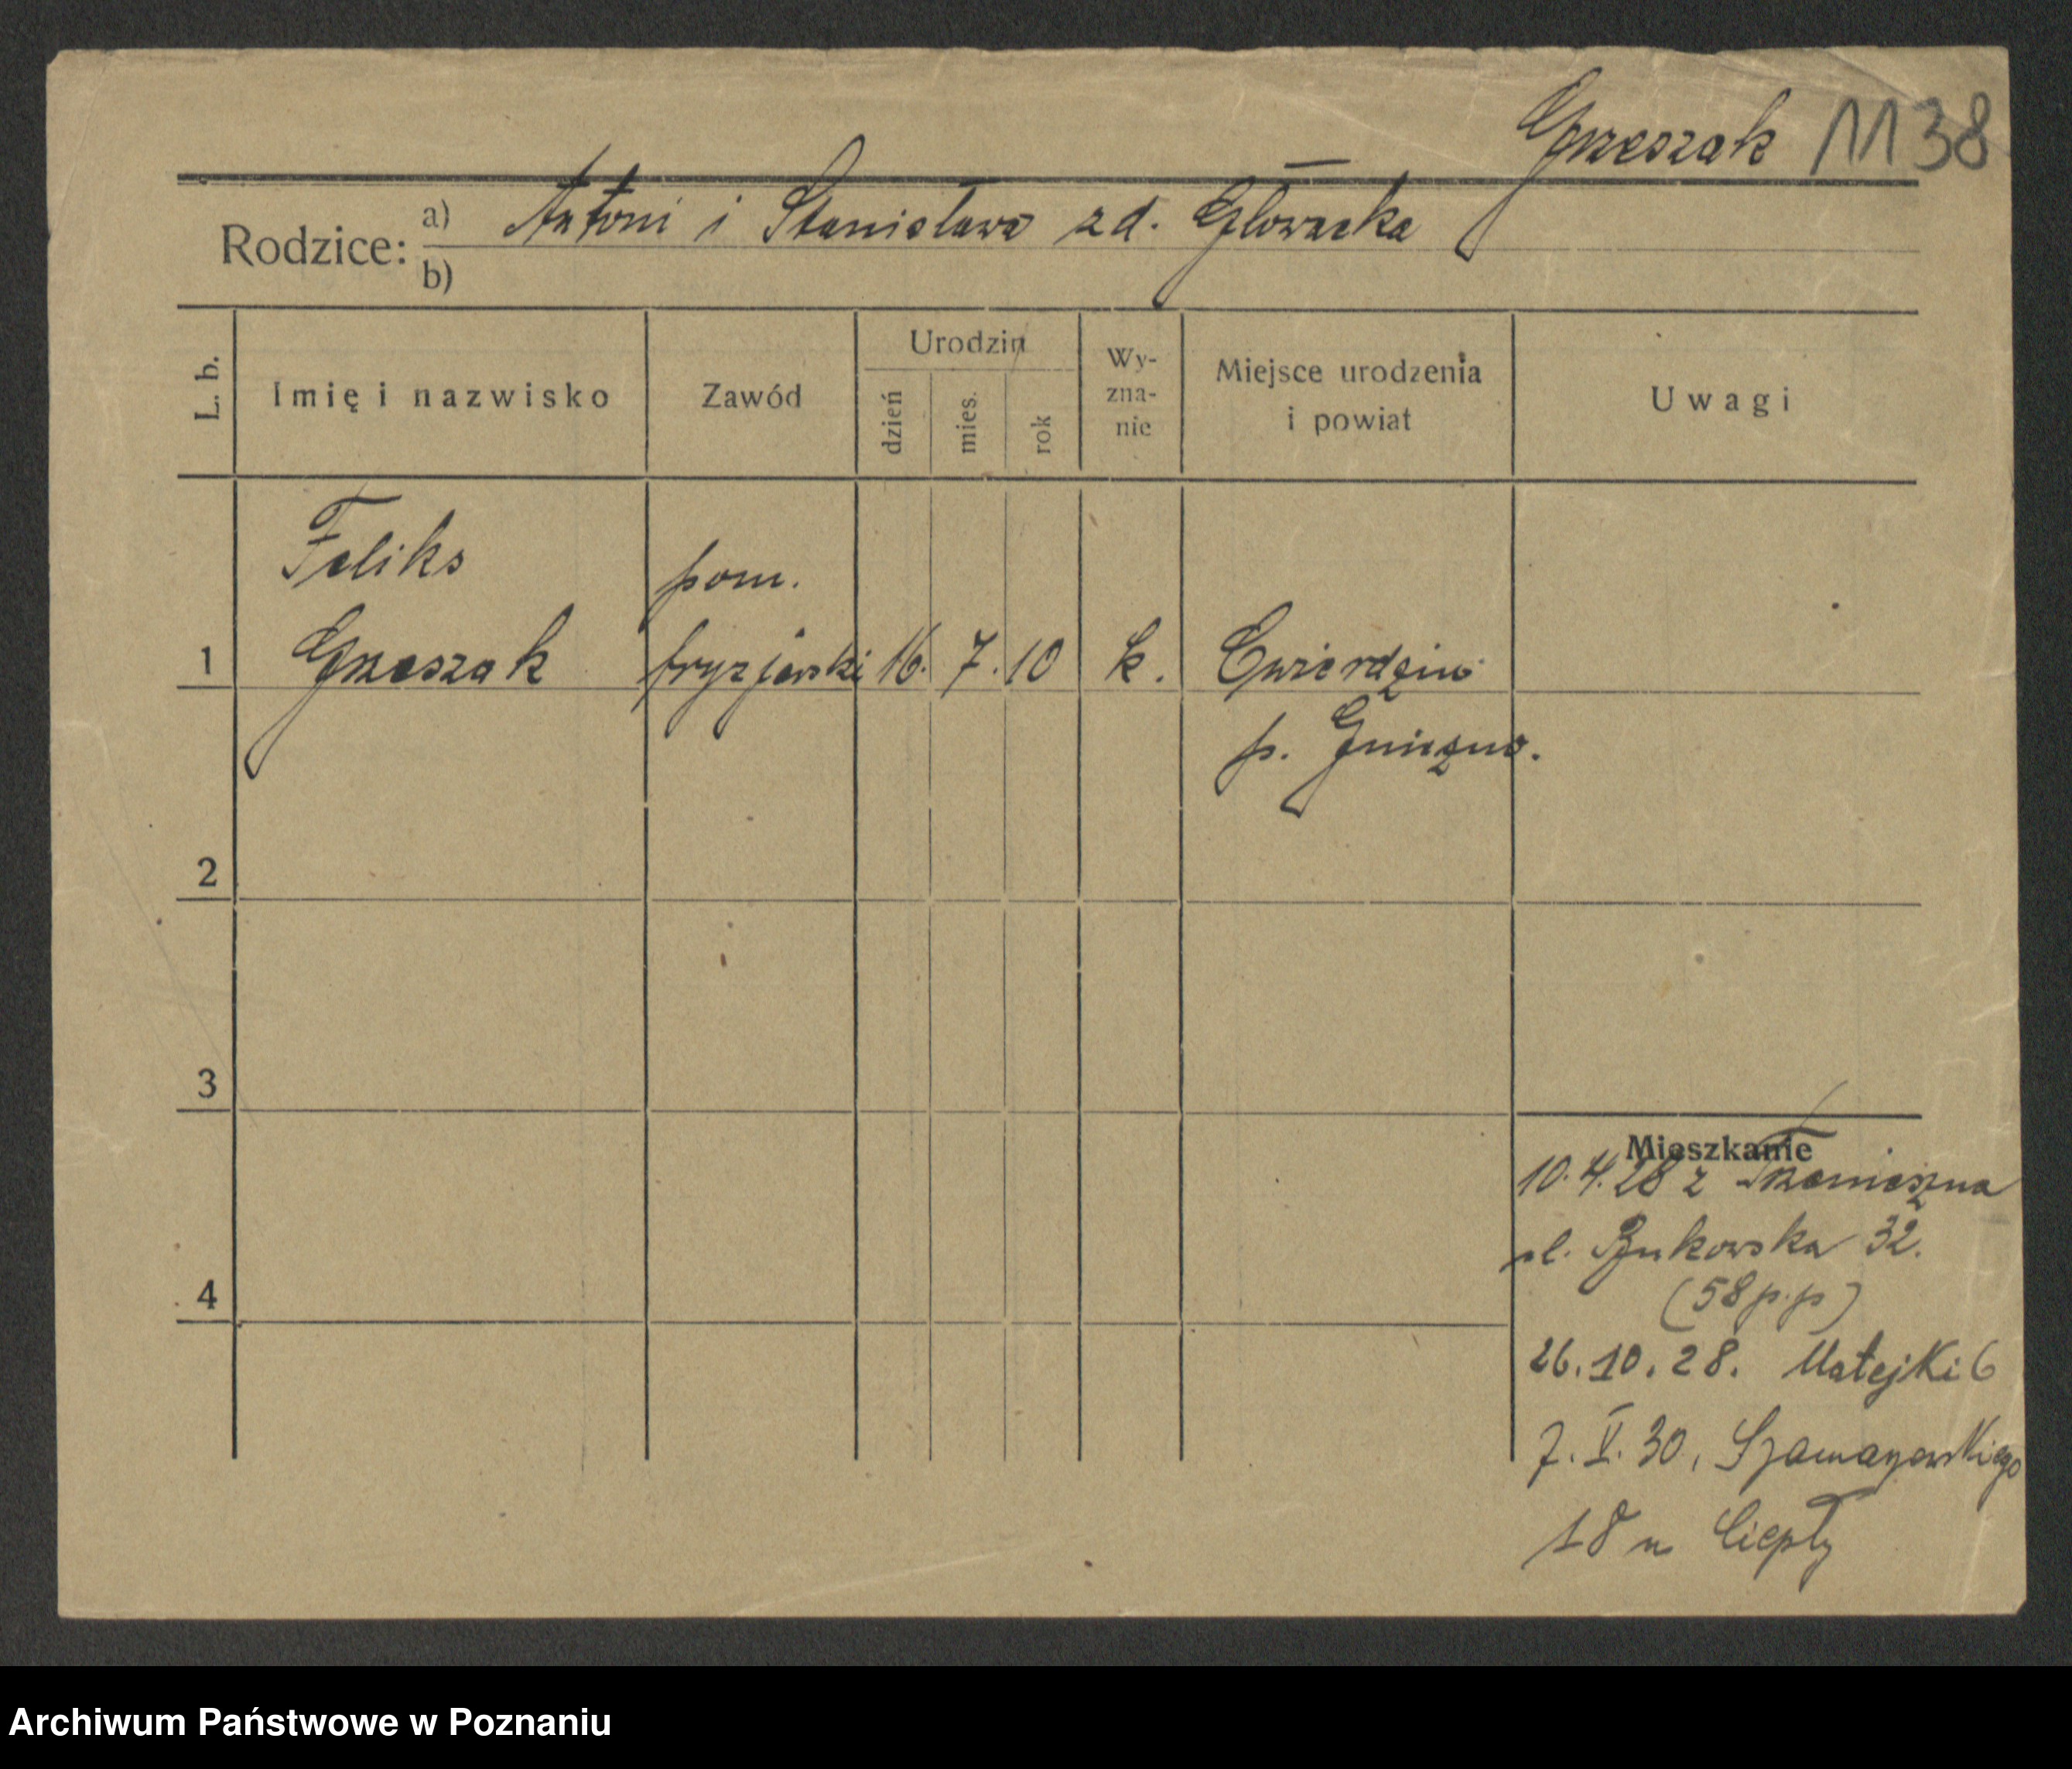 Grzeszak 1138
Rodzice: a) Antoni i Stanisława zd. Głowacka
b)
L. b.
Imię i nazwisko
Zawód
Urodzin
dzień
mies.
rok
Wy-
zna-
nie
Miejsce urodzenia
i powiat
Uwagi
Feliks
pom.
1 Grzeszak fryzjerski 16. 7. 10 k. Ćwierdzin
p. Gniezno.
2
3
4
Mieszkanie
10.4.28 z Trzemeszna
ul. Bukowska 32.
(58 p.p)
26.10.28. Matejki 6
7. V. 30,
18 u Ciepły
Archiwum Państwowe w Poznaniu